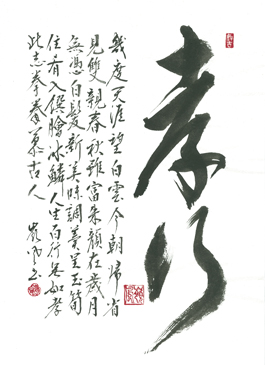 孝行
幾度天涯望白雲今朝歸省
見雙親春秋雖富朱顏在歲月
無憑白髮新美味調羹呈玉筍
佳肴入饌膾冰鱗人生百行無如孝
此志拳拳慕古人